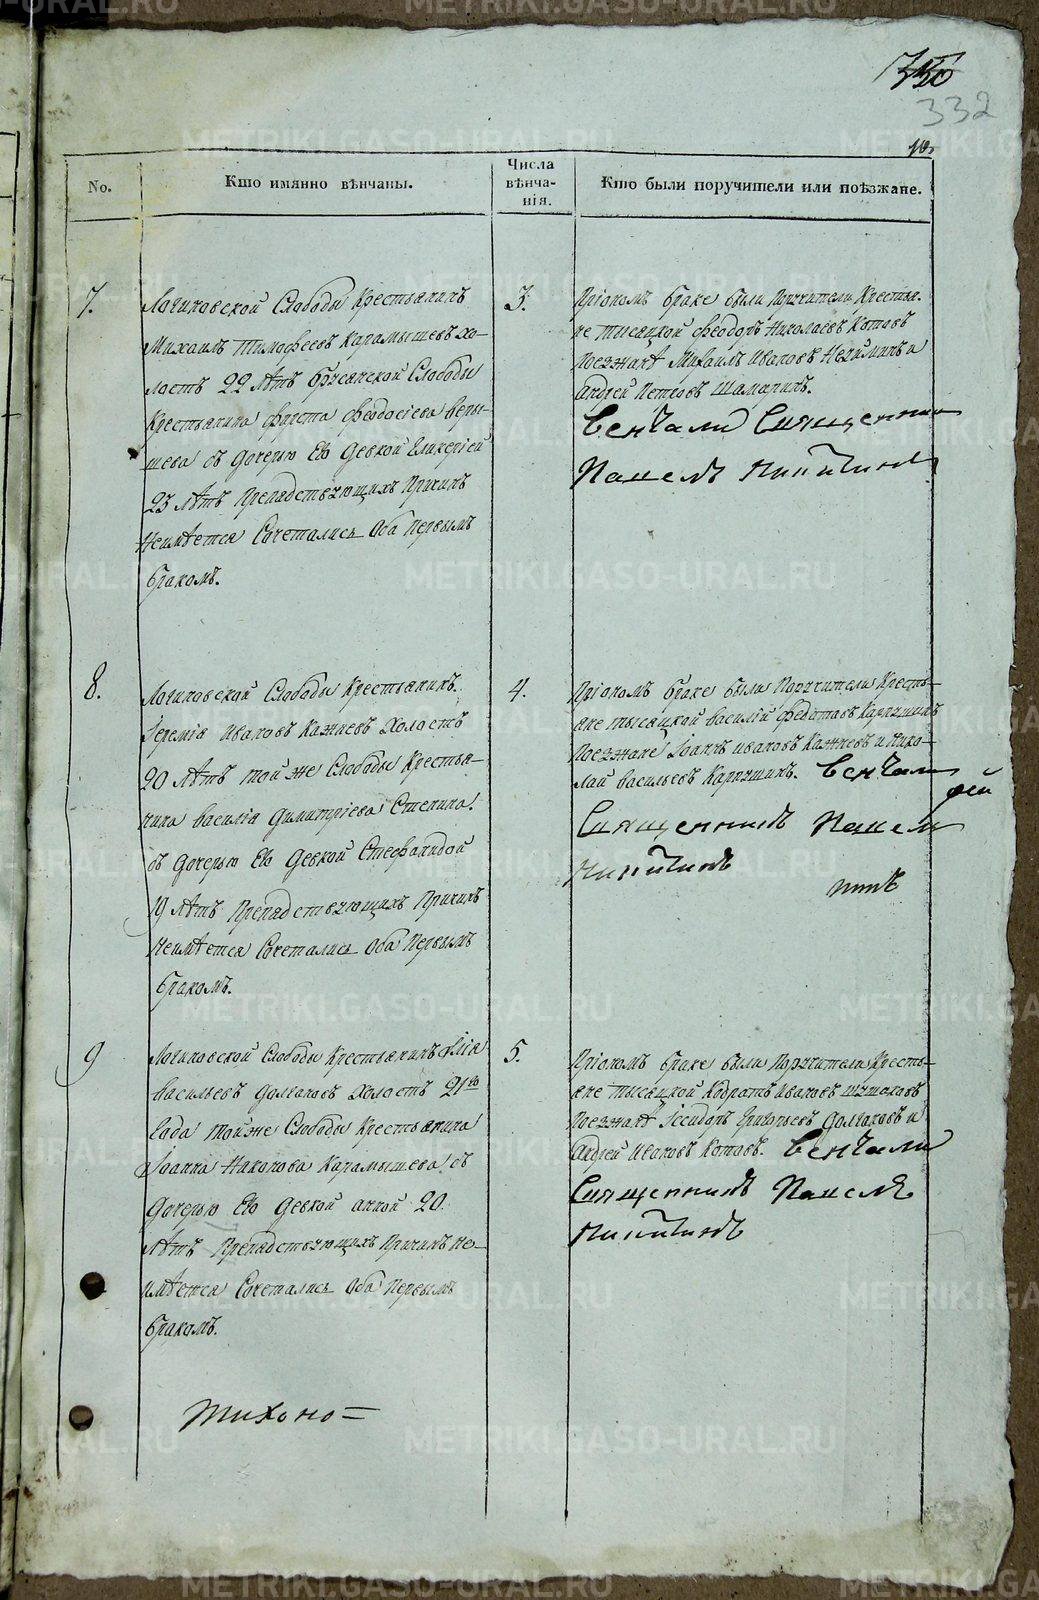 332
10.
No.
Кто имянно вѣнчаны.
Числа
вѣнча-
нія.
Кто были поручители или поѣзжане.
7.
Логиновской Слободы Крестьянинъ
Михаилъ Тимофеевъ Карамышевъ хо-
лостъ 22 лѣтъ брусянской Слободы
Крестьянина Феодосіева
шева съ Дочерью Ею Девкой Гликеріей
23 лѣтъ Препядствующихъ Причинъ
Неимѣется Сочетались Оба Первымъ
бракомъ.
3.
Пріономъ браке были Поручители Крестья-
не тысяцкой Феодоръ Николаевъ Котовъ
Поезжанѣ Михаилъ Ивановъ и
Андрей Петровъ Шамаринъ.
Венчали Священник
Павелъ Никитинъ
8.
Логиновской Слободы Крестьянинъ
Іеремія Ивановъ Кажневъ Холостъ
20 лѣтъ той же Слободы Крестья-
нина Василія Димитріева Степина
съ Дочерью Ею Девкой Стефанидой
19 лѣтъ Препядствующихъ Причинъ
Неимѣется Сочетались Оба Первымъ
бракомъ.
4.
Пріономъ браке были Поручители Кресть-
яне тысяцкой Василій Федотовъ Карпушинъ
Поезжане Іоаннъ Ивановъ Кажневъ и Нико-
лай Васильевъ Карпушинъ. Венчали
Священникъ Павел
Никитинъ
9
Логиновской Слободы Крестьянинъ Илія
Васильевъ Долгановъ Холостъ 21го
Года той же Слободы Крестьянина
Іоанна Никонова Карамышева съ
Дочерью Ею Девкой Анной 20.
лѣтъ Препядствующихъ Причинъ Не-
имѣется Сочетались Оба Первымъ
бракомъ.
5.
Пріономъ браке были Поручители Кресть-
яне тысяцкой Кодратъ Ивановъ Шушаковъ
Поезжанѣ Іссидоръ Григорьевъ Долгановъ и
Андрей Ивановъ Котовъ. Венчали
Священникъ Павелъ
Никитинъ
тихоно=
METRIKI.GASO-URAL.RU